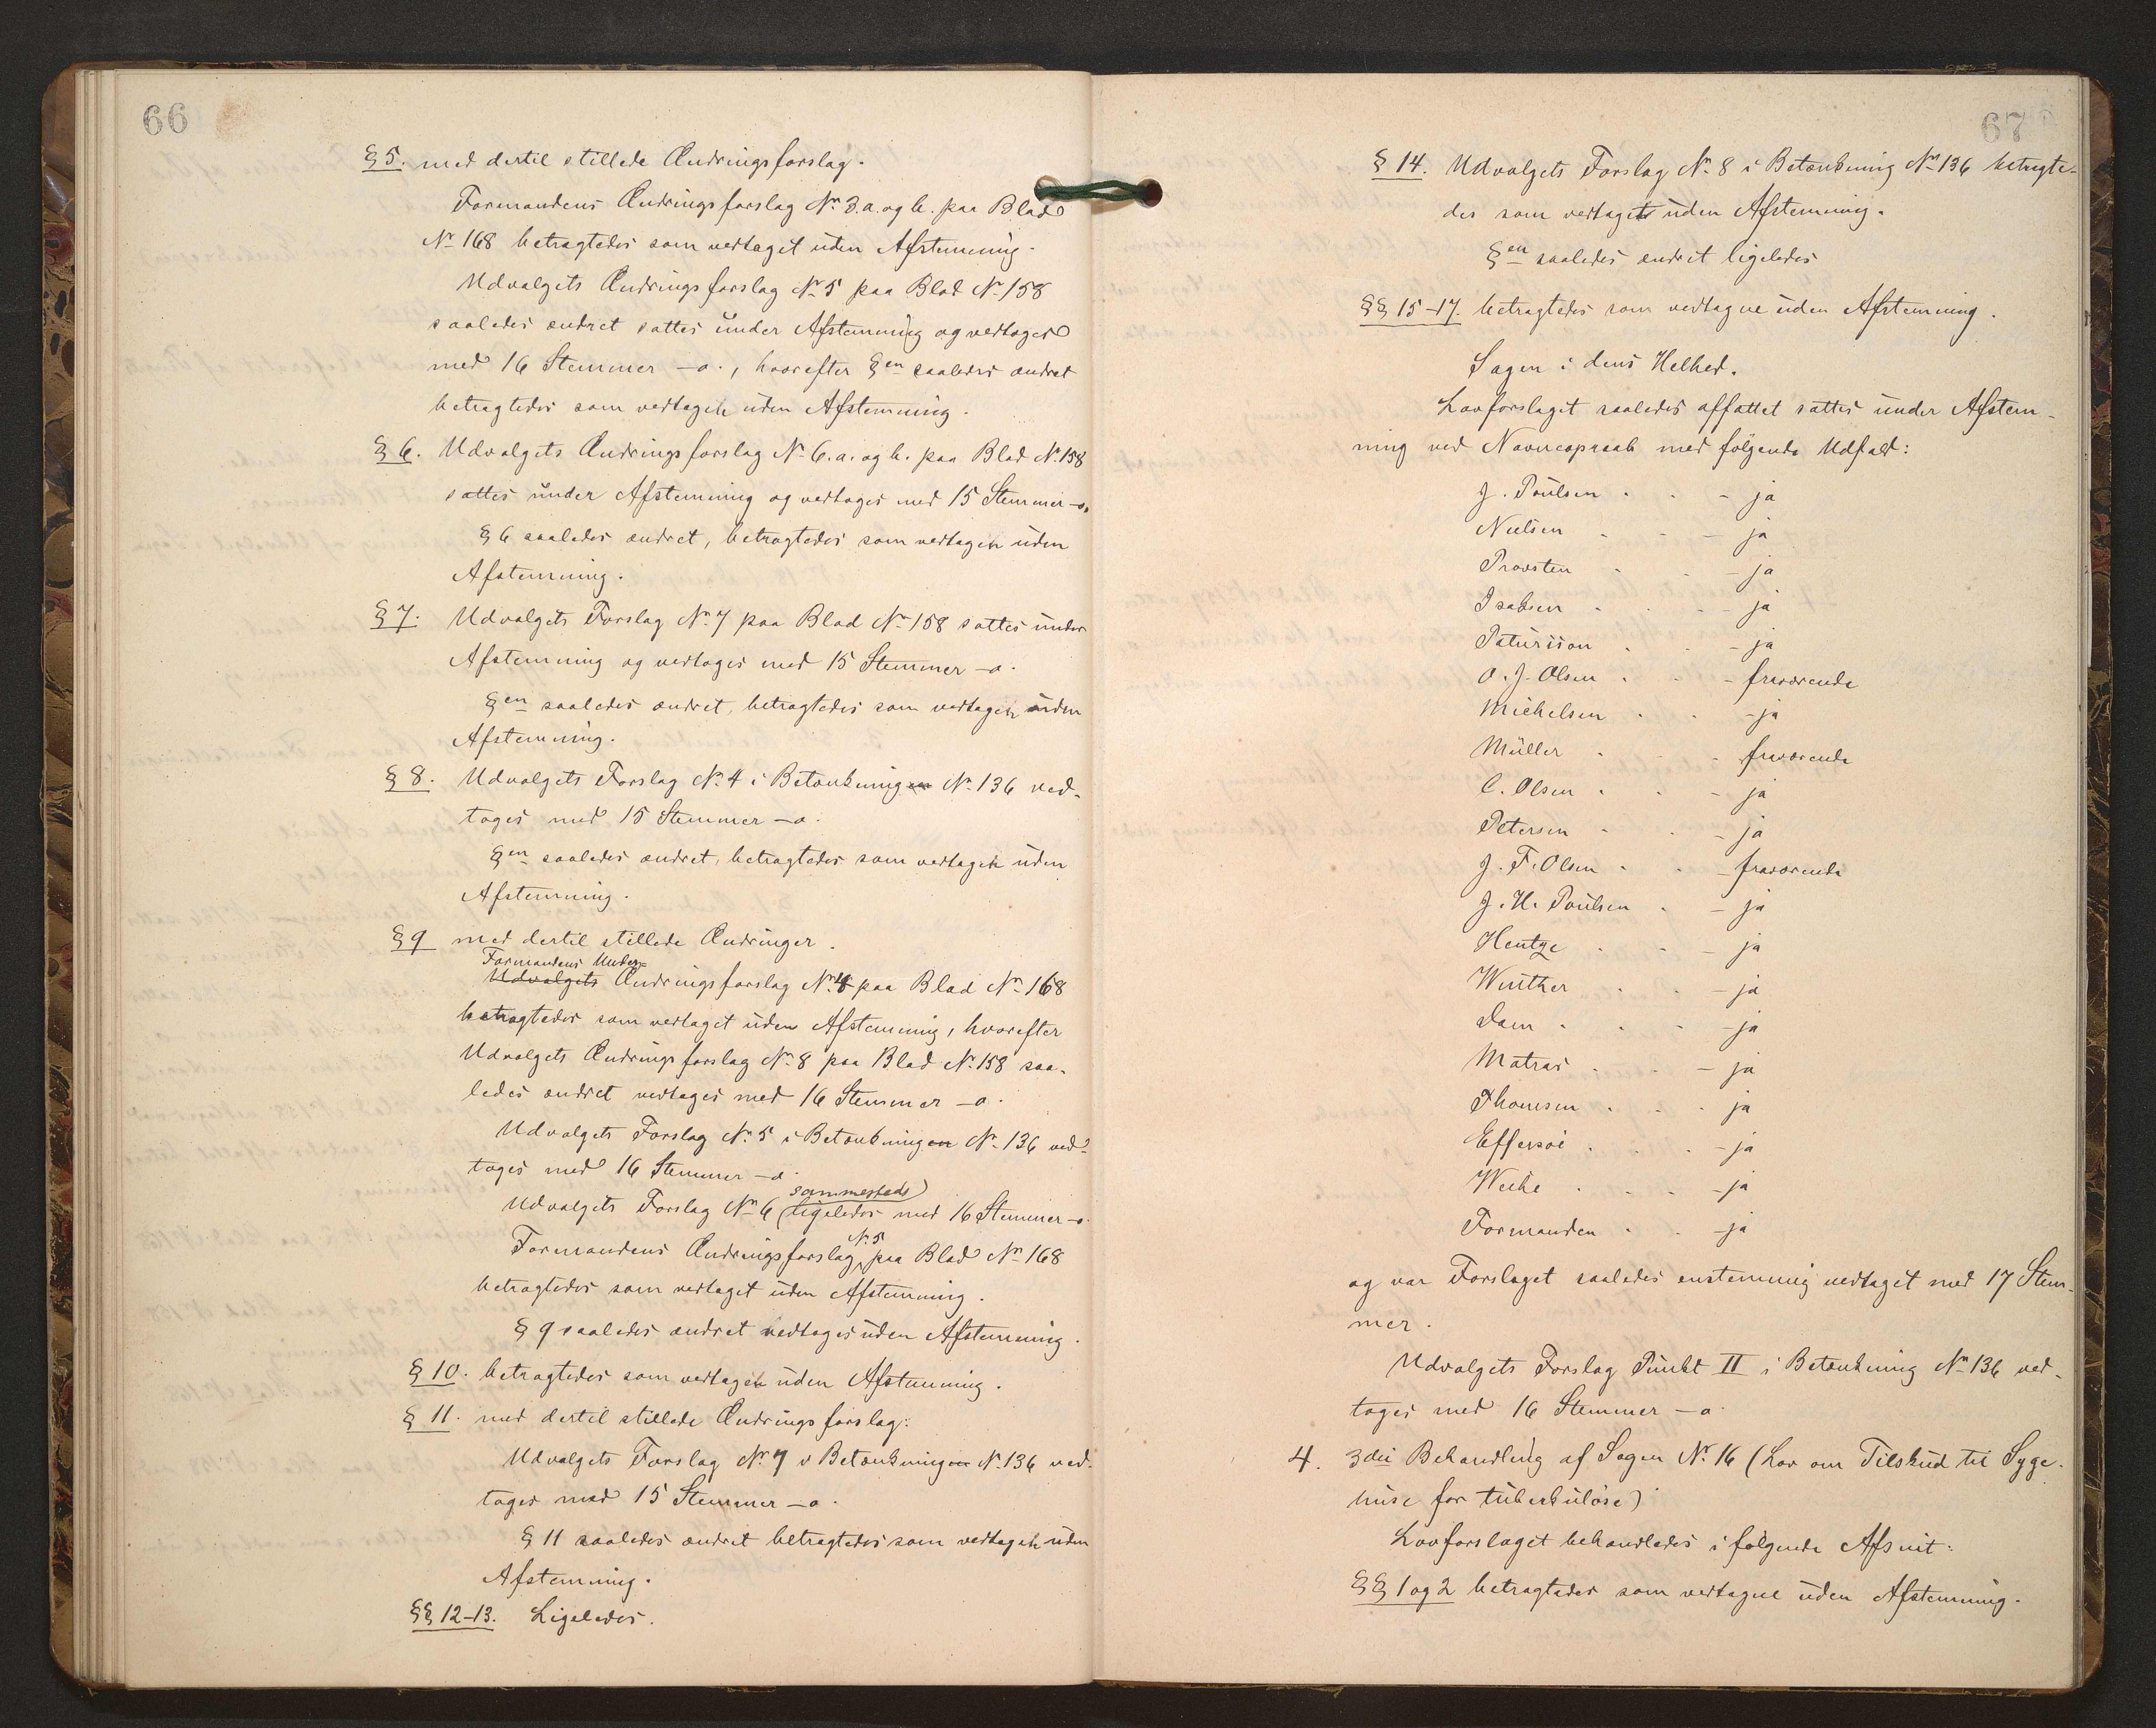 66
§ 5. med dertil stillede Ændringsforslag.
Formandens Ændringsforslag No 3. a. og b. paa Blad
No 168 betragtedes som vedtaget uden Afstemning.
Udvalgets Ændringsforslag No 5 paa Blad No 158
saaledes ændret sattes under Afstemning og vedtoges
med 16 Stemmer – o., hvorefter §en saaledes ændret
betragtedes som vedtagen uden Afstemning.
§ 6. Udvalgets Ændringsforslag No 6. a. og b. paa Blad No 158
sattes under Afstemning og vedtoges med 15 Stemmer – o.
§ 6 saaledes ændret, betragtedes som vedtagen uden
Afstemning.
§ 7. Udvalgets Forslag No 7 paa Blad No 158 sattes under
Afstemning og vedtoges med 15 Stemmer – o.
§en saaledes ændret, betragtedes som vedtagen uden
Afstemning.
§ 8. Udvalgets Forslag No 4 i Betænkningen No 136 ved-
toges med 15 Stemmer – o.
§en saaledes ændret, betragtedes som vedtagen uden
Afstemning.
§ 9 med dertil stillede Ændringer.
Formandens Under-
Udvalgets Ændringsforslag No 4 paa Blad No 168
betragtedes som vedtaget uden Afstemning, hvorefter
Udvalgets Ændringsforslag No 8 paa Blad No 158 saa-
ledes ændret vedtoges med 16 Stemmer – o.
Udvalgets Forslag No 5 i Betænkningen No 136 ved-
toges med 16 Stemmer – o.
sammesteds
Udvalgets Forslag No 6 (ligeledes med 16 Stemmer – o.
No 5
Formandens Ændringsforslag paa Blad No 168
betragtedes som vedtaget uden Afstemning.
§ 9 saaledes ændret vedtoges uden Afstemning.
§ 10. betragtedes som vedtagen uden Afstemning.
§ 11. med dertil stillede Ændringsforslag:
Udvalgets Forslag No 7 i Betænkningen No 136 ved-
toges med 15 Stemmer – o.
§ 11 saaledes ændret betragtedes som vedtagen uden
Afstemning.
§§ 12–13. Ligeledes.
67
§ 14. Udvalgets Forslag No 8 i Betænkning No 136 betragte-
des som vedtaget uden Afstemning.
§en saaledes ændret ligeledes
§§ 15–17. betragtedes som vedtagne uden Afstemning.
Sagen i dens Helhed.
Lovforslaget saaledes affattet sattes under Afstem-
ning ved Navneopraab med følgende Udfald:
J. Poulsen . . – ja
Nielsen . . – ja
Provsten . . – ja
Isaksen . . – ja
Patursson . . – ja
O. J. Olsen . . – fraværende
Michelsen . . – ja
Müller . . – fraværende
C. Olsen . . – ja
Petersen . . – ja
J. F. Olsen . . – fraværende
J. H. Poulsen . – ja
Hentze . . – ja
Winther . . – ja
Dam . . . – ja
Matras . . – ja
Thomsen . . . ja
Effersøe . . . – ja
Weihe . . . – ja
Formanden . . – ja
og var Forslaget saaledes enstemmig vedtaget med 17 Stem-
mer.
Udvalgets Forslag Punkt II i Betænkning No 136 ved-
toges med 16 Stemmer – o.
4. 3die Behandling af Sagen No 16 (Lov om Tilskud til Syge-
huse for tuberkuløse)
Lovforslaget behandledes i følgende Afsnit:
§§ 1 og 2 betragtedes som vedtagne uden Afstemning.